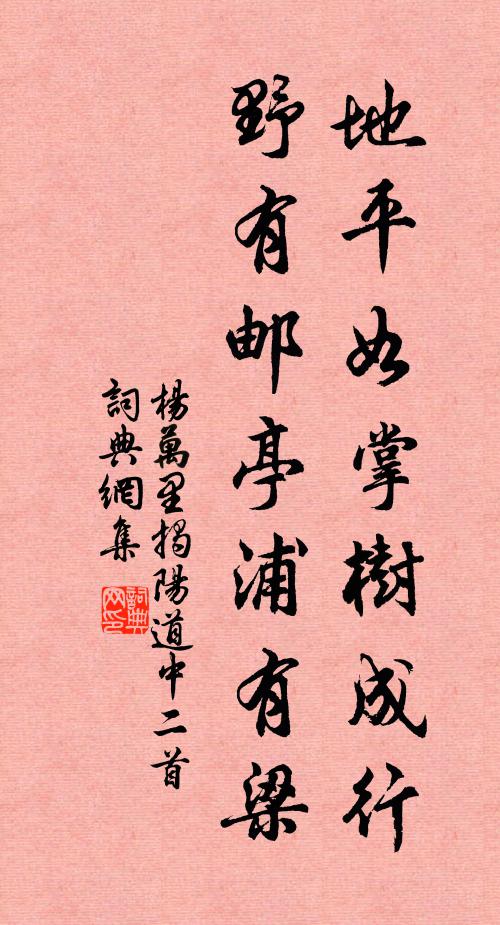 地平如掌樹成行
野有邮亭浦有梁
楊萬里揭陽道中二首
詞典網集
詞典网印